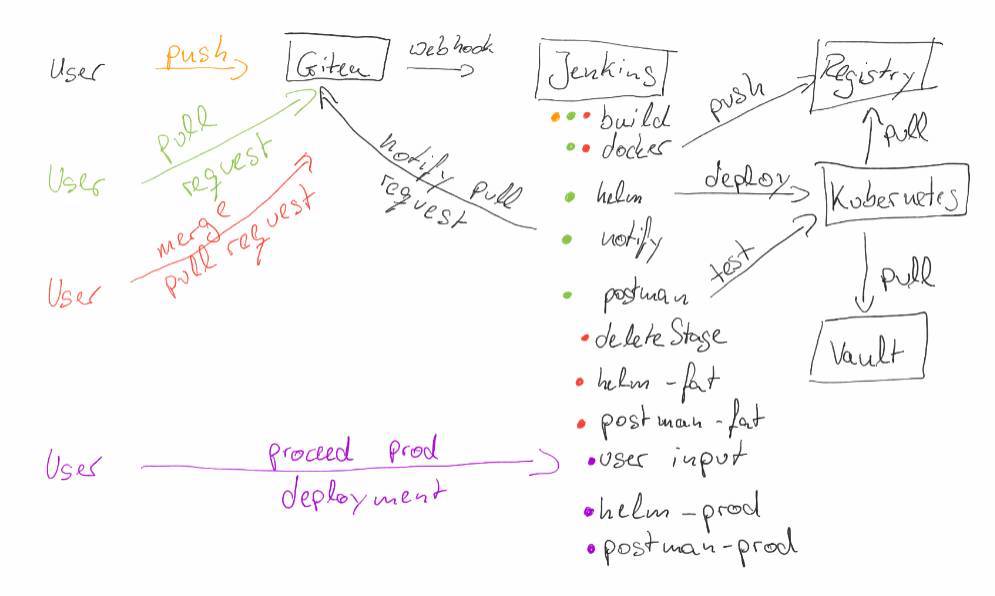 User
push
Gitea
webhook
Jenkins
Registry
build
docker
push
pull
User
pull
request
notify pull
request
helm
deploy
Kubernetes
notify
merge
pull request
User
test
postman
pull
deleteStage
Vault
helm-fat
postman-fat
User
proceed prod
deployment
user input
helm-prod
postman-prod